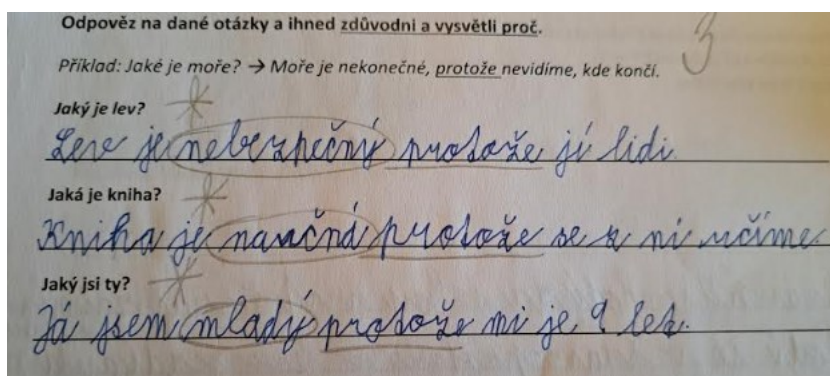 Odpověz na dané otázky a ihned zdůvodni a vysvětli proč.
3
Příklad: Jaké je moře? → Moře je nekonečné, protože nevidíme, kde končí.
Jaký je lev?
Lev je nebezpečný protože jí lidi.
Jaká je kniha?
Kniha je naučná protože se z ni učíme
Jaký jsi ty?
Já jsem mladý protože mi je 9 let.